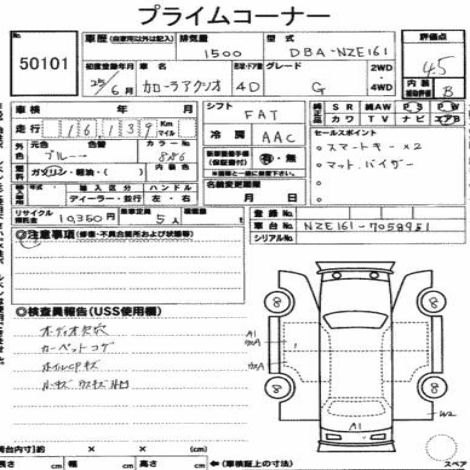 プライムコーナー
No. 50101
車歴(自家用以外は記入) 排気量 1500 型式 DBA-NZE161 評価点 4.5
初度登録年月 25年/6月 車名 カローラアクシオ 形状・ドア数 4D グレード G 2WD・4WD 内装 補助評価 B
車検 年 月 シフト FAT 純正 SR 純AW PS PW
走行 16139 Km マイル カワ TV ナビ エアB
冷房 AAC セールスポイント
外色 元色 ブルー 色替 カラーNo. 8S6 新車整備手帳(保証書付) 有・無 スマートキー×2
燃料 ガソリン・軽油・( ) 内装色 マット、バイザー
輸入車 年式 輸入区分 ディーラー・並行 ハンドル 左・右 名義変更期限 月 日
リサイクル預託金 10,350円 乗車定員 5人 積載量 t
登録No.
車台No. NZE161-7058951
シリアルNo.
◎注意事項(修復・不具合箇所および状態等)
◎検査員報告(USS使用欄)
オーディオ欠穴
カーペットコゲ
ホイルCPキズ
8 8 8 8
A1 A1 W2
荷台内寸) 約 × × (cm)
長さ cm 幅 cm 高さ cm ←(車検証上の寸法) スペア